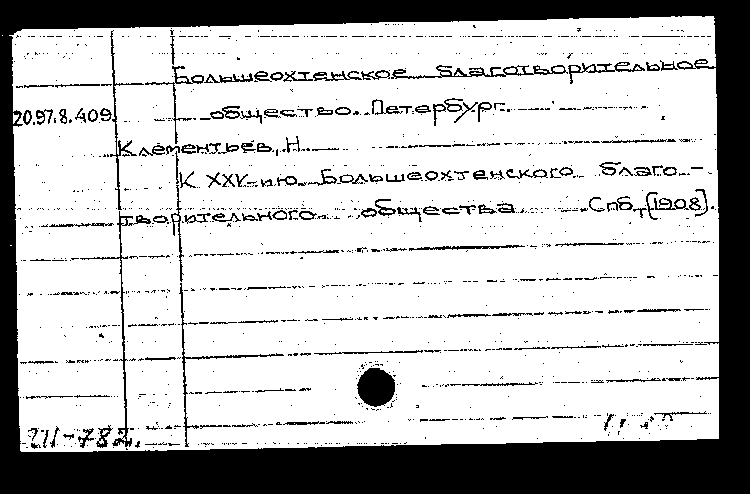 Большеохтенское благотворительное
20.97.8.409. общество. Петербург.
Клементьев, Н.
К XXV-ию Большеохтенского благо-
творительного общества. Спб., [1908].
211-782.